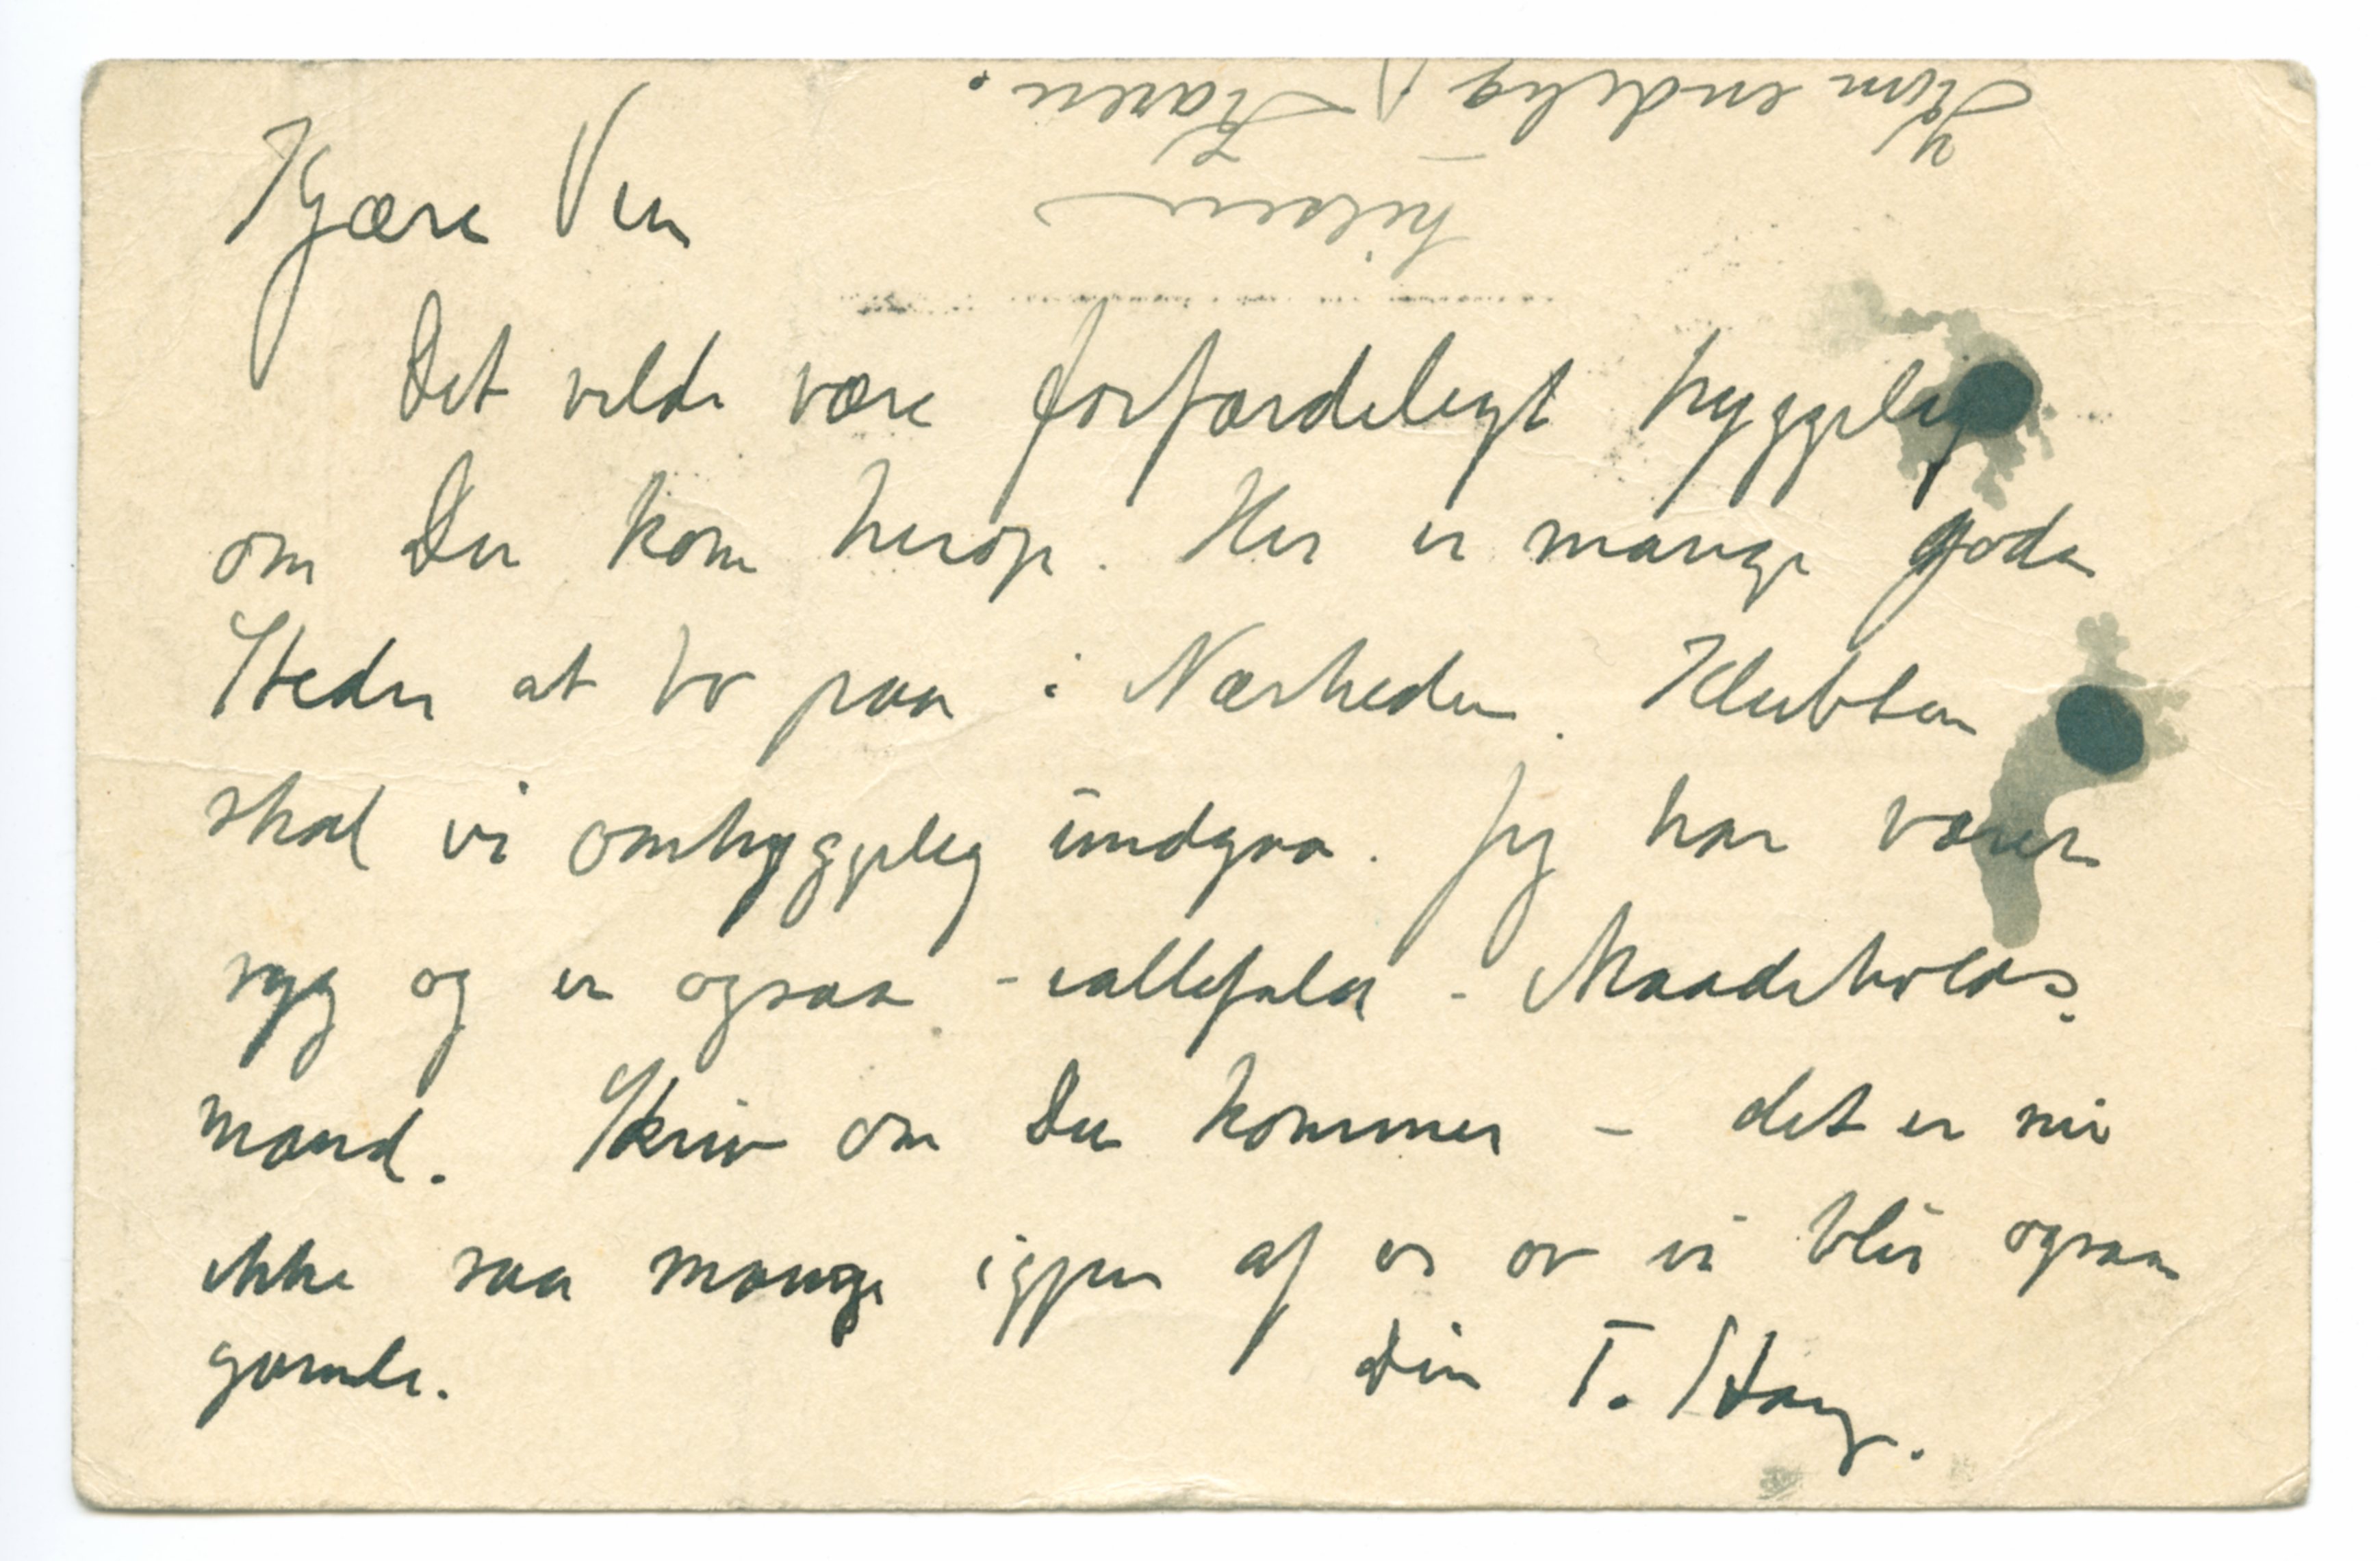 Kjære Ven
Det vilde være forfærdeligt hyggelig
om Du kom herop. Her er mange gode
Steder at bo paa i Nærheden. Klubben
skal vi omhyggelig undgaa. Jeg har været
syg og er ogsaa - ialtefald - Maadeholds-
mand. Skriv om Du kommer - det er nu
ikke saa mange igjen af os og vi blir ogsaa
gamle.
Din T. Stang.
Kom endelig!
hilsen Karen.